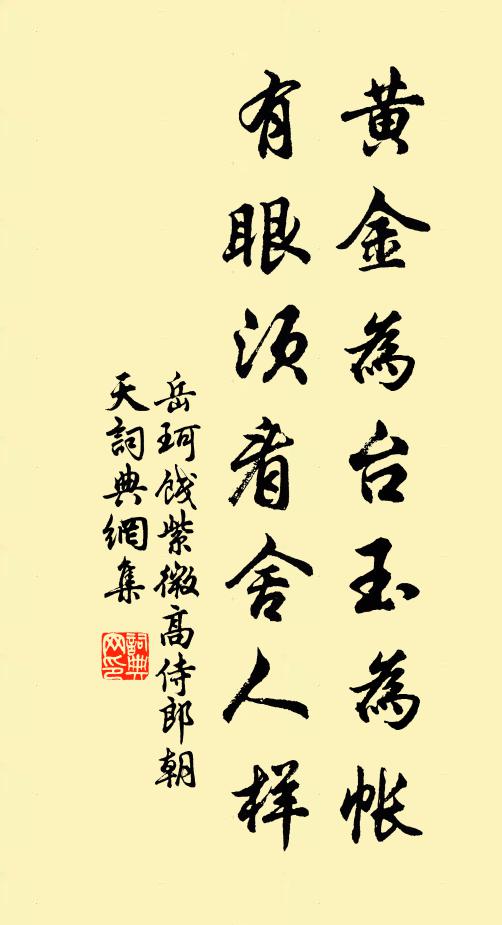 黄金為台玉為帐
有眼须看舍人样
岳珂饯紫微高侍郎朝
天詞典網集
詞典网印